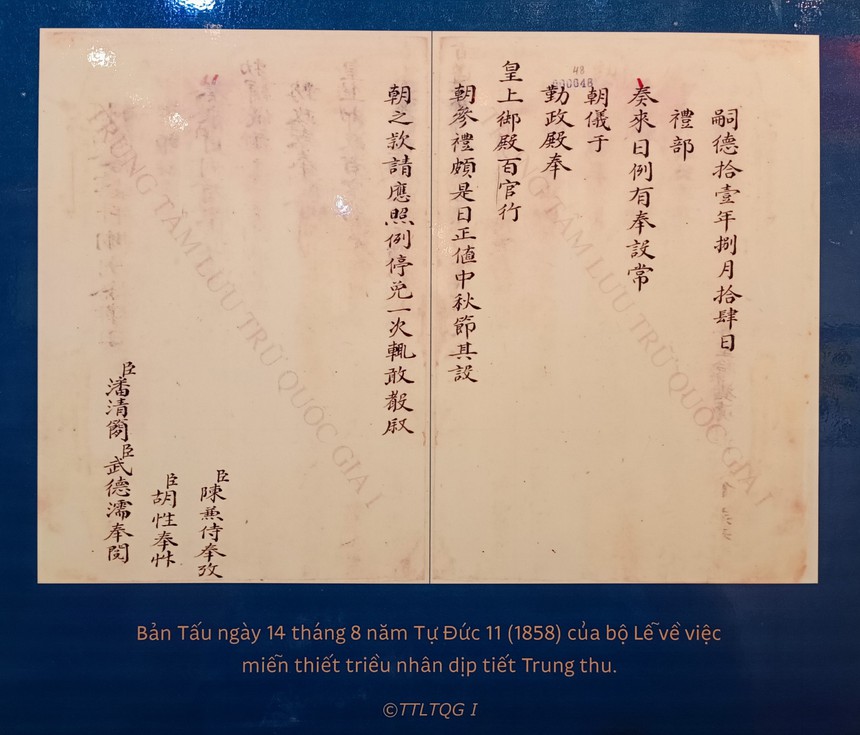 48
000048
嗣德拾壹年捌月拾肆日
禮部
奏來日例有奉設常
朝儀于
勤政殿奉
皇上御殿百官行
朝參禮頗是日正值中秋節其設
朝之款請應照例停免一次輒敢敍
臣陳侍奉攷
臣胡性奉艸
臣潘清簡臣武德濡奉閱
TRUNG TÂM LƯU TRỮ QUỐC GIA I
TRUNG TÂM LƯU TRỮ QUỐC GIA I
Bản Tấu ngày 14 tháng 8 năm Tự Đức 11 (1858) của bộ Lễ về việc
miễn thiết triều nhân dịp tiết Trung thu.
©TTLTQG I